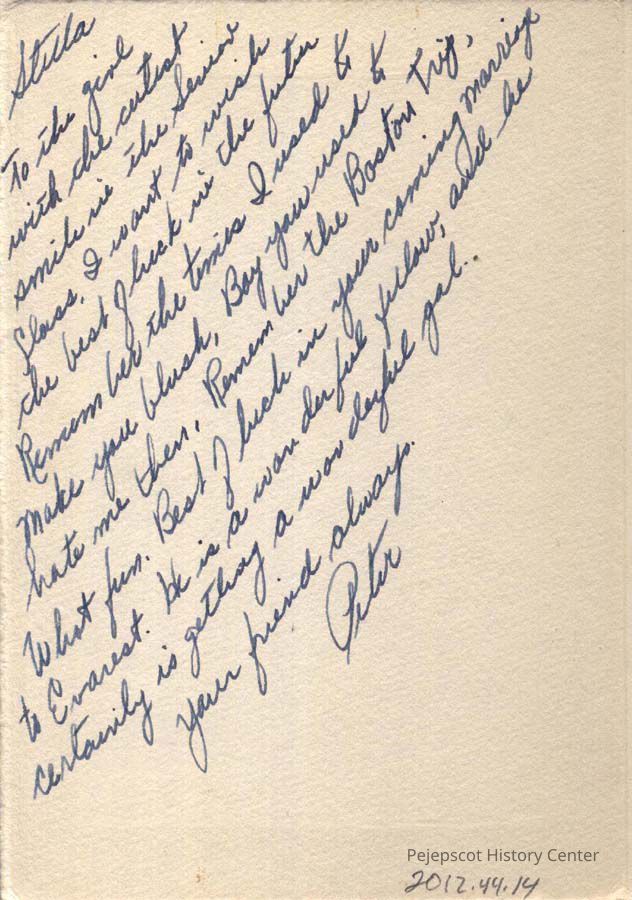 Stella
To the girl
with the cutest
smile in the Senior
Class, I want to wish
the best of luck in the future
Remember the times I used to
make you blush, Boy you used to
hate me then, Remember the Boston Trip,
What fun. Best of luck in your coming marriage
to Evarest. He is a wonderful fellow, and he
certainly is getting a wonderful gal.
Your friend always.
Peter
Pejepscot History Center
2012.44.14